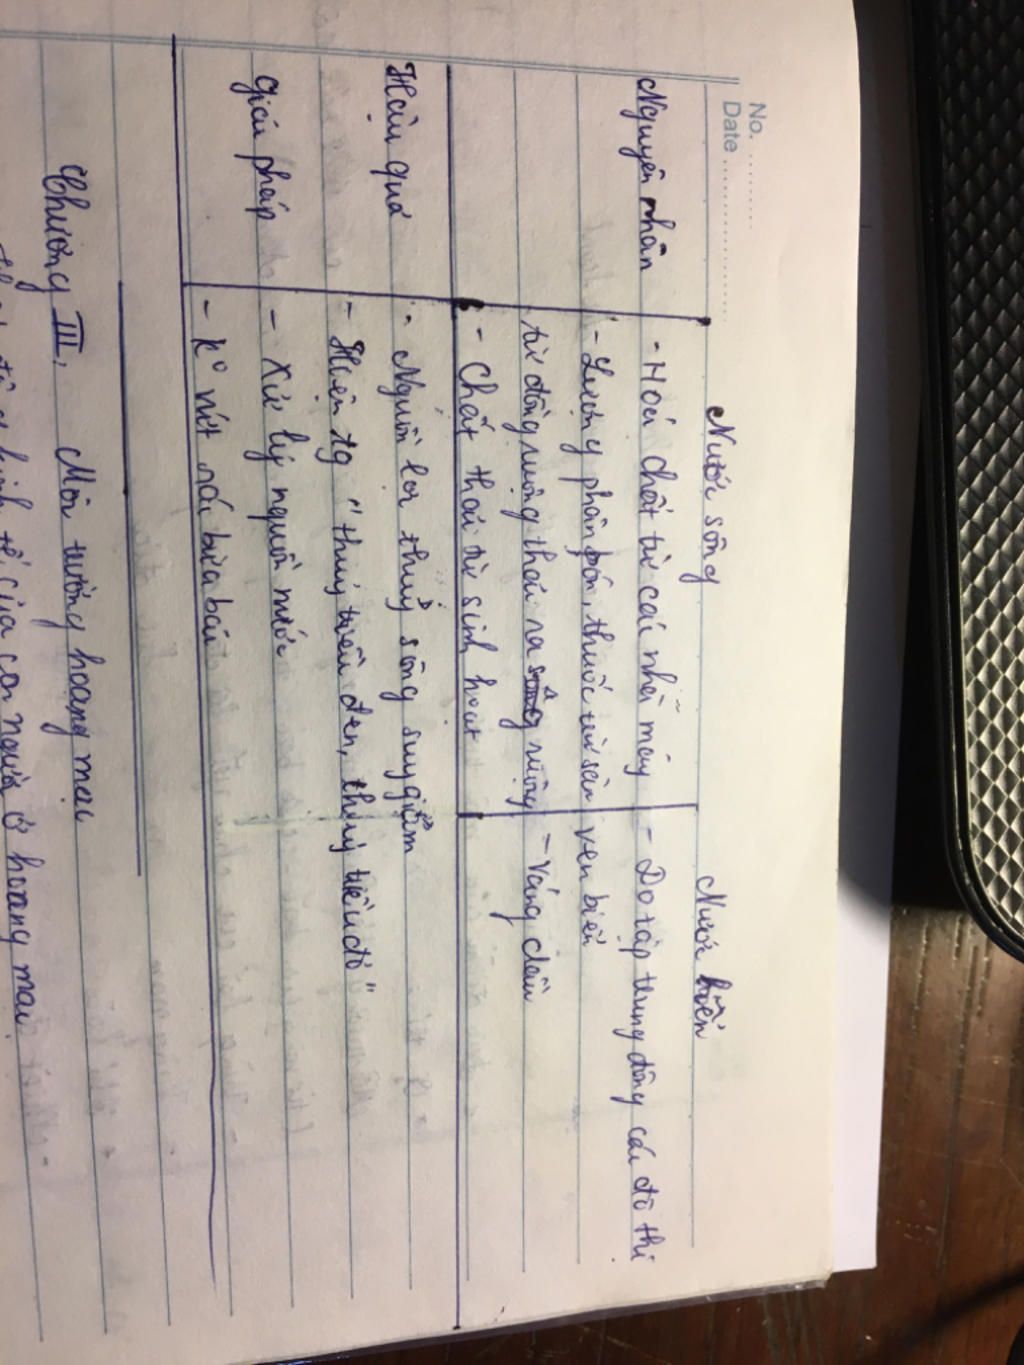 No. ............
Date ........................
Nước sông Nước biển
Nguyên nhân - Hoá chất từ các nhà máy - Do tập trung đông các đô thị
- Lượng phân bón, thuốc trừ sâu ven biển
từ đồng ruộng thải ra ruộng - Váng dầu
- Chất thải từ sinh hoạt
Hậu quả - Nguồn lợi thuỷ sông suy giảm
- Hiện tg "thuỷ triều đen, thuỷ triều đỏ"
Giải pháp - Xử lý nguồn nước
- K° vứt rác bừa bãi
Chương III. Môi trường hoang mạc
kinh tế của con người ở hoang mạc